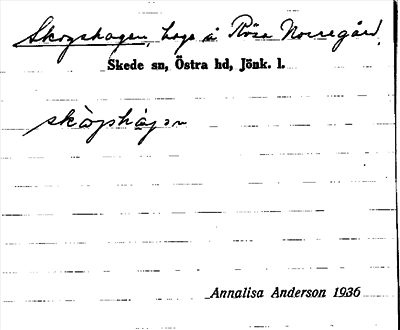 Skogshagen, hage å Rösa Norregård,
Skede sn, Östra hd, Jönk. l.
skògshàgən
Annalisa Anderson 1936